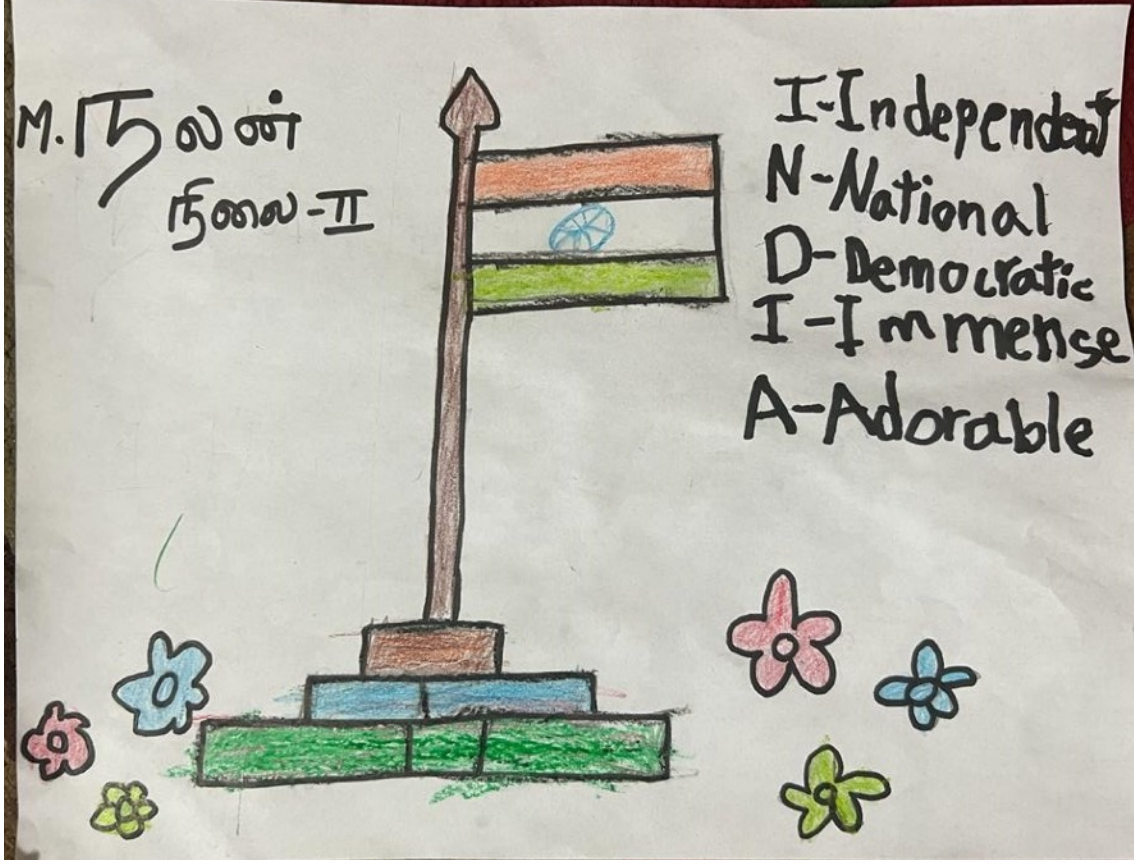 M. நலன்
நிலை-II
I-Independent
N-National
D-Democratic
I-Immense
A-Adorable